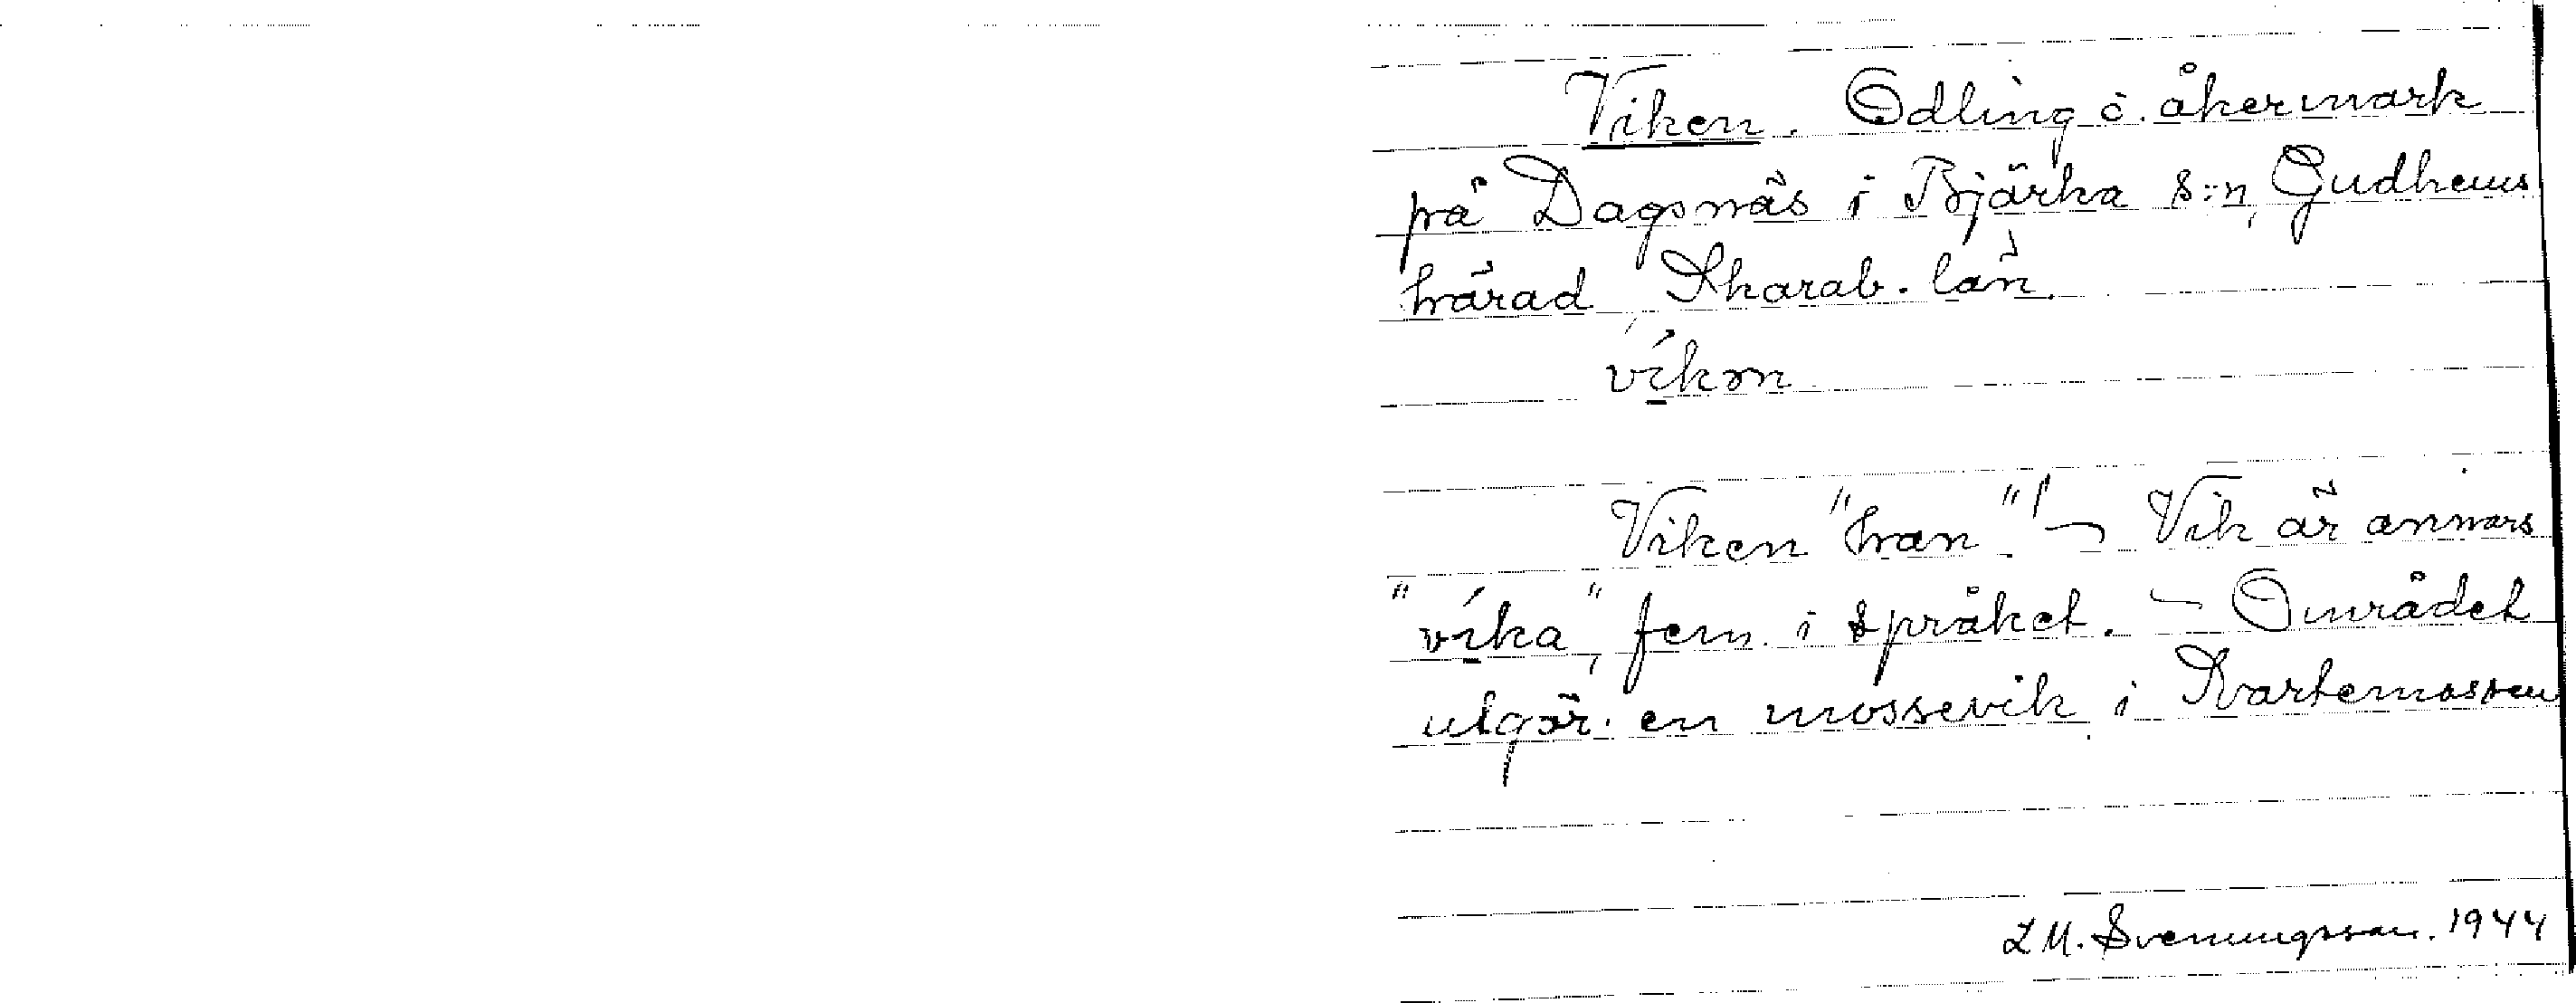 Viken. Odling o. åkermark
på Dagsnäs i Bjärka s:n, Gudhems
härad, Skarab. län.
víkɘn
Viken "han"! – Vik är annars
"víka", fem. i språket. – Området
utgör en mossevik i Kvartemossen
L M. Svenungsson. 1944